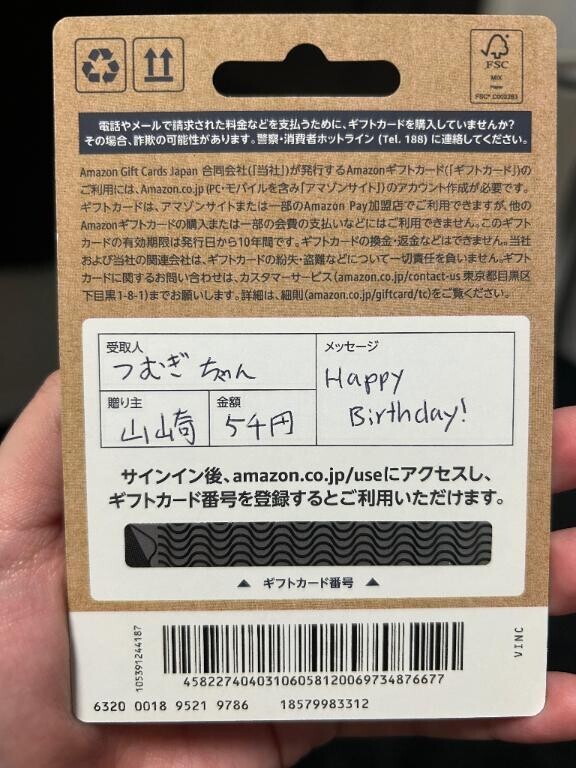 FSC
MIX
Paper
FSC® C002283
電話やメールで請求された料金などを支払うために、ギフトカードを購入していませんか?
その場合、詐欺の可能性があります。警察・消費者ホットライン (Tel. 188) に連絡してください。
Amazon Gift Cards Japan 合同会社(「当社」)が発行するAmazonギフトカード(「ギフトカード」)の
ご利用には、Amazon.co.jp (PC・モバイルを含み「アマゾンサイト」)のアカウント作成が必要です。
ギフトカードは、アマゾンサイトまたは一部のAmazon Pay加盟店でご利用できますが、他の
Amazonギフトカードの購入または一部の会費の支払いなどにはご利用できません。このギフト
カードの有効期限は発行日から10年間です。ギフトカードの換金・返金などはできません。当社
および当社の関連会社は、ギフトカードの紛失・盗難などについて一切責任を負いません。ギフト
カードに関するお問い合わせは、カスタマーサービス(amazon.co.jp/contact-us 東京都目黒区
下目黒1-8-1)までお願いします。詳細は、細則(amazon.co.jp/giftcard/tc)をご覧ください。
受取人
つむぎちゃん
メッセージ
Happy
Birthday!
贈り主
山崎
金額
5千円
サインイン後、amazon.co.jp/useにアクセスし、
ギフトカード番号を登録するとご利用いただけます。
▲ ギフトカード番号 ▲
105391244187
VINC
458227404031060581200697348766​77
6320 0018 9521 9786 18579983312